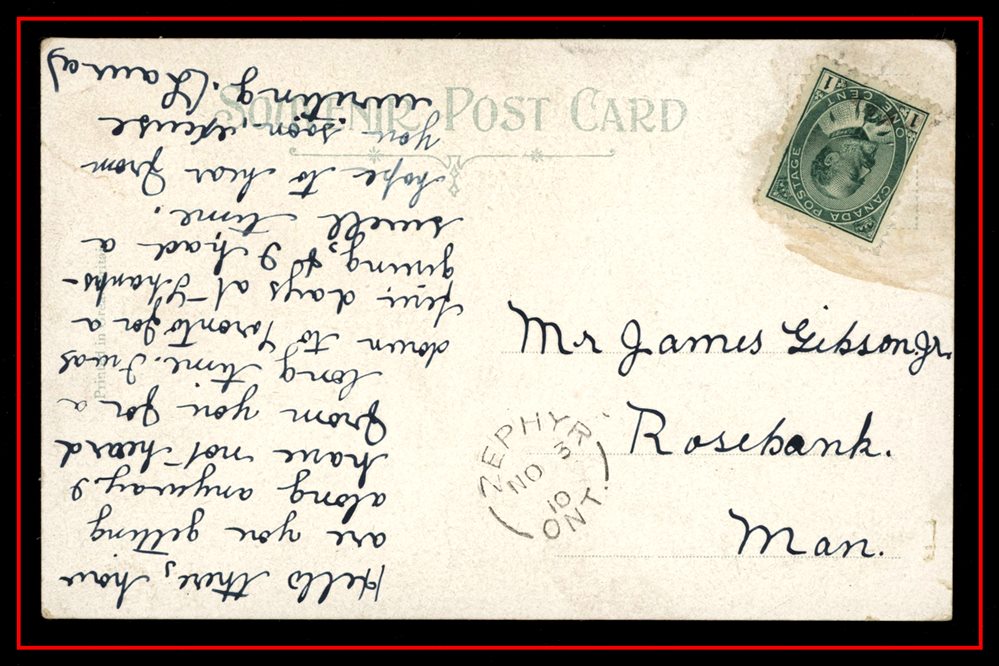 SOUVENIR POST CARD
CANADA POSTAGE
ONE CENT
1 1
Mr James Gibson. Jr.
Rosebank.
Man.
ZEPHYR
NO 3
10
ONT.
Printed in
Hello there, how
are you getting
along anyway. I
have not heard
from you for a
long time. I was
down to Toronto for a
few days at Thanks-
giving, & I had a
swell time.
hope to hear from
you soon, excuse
writing. (Laura)